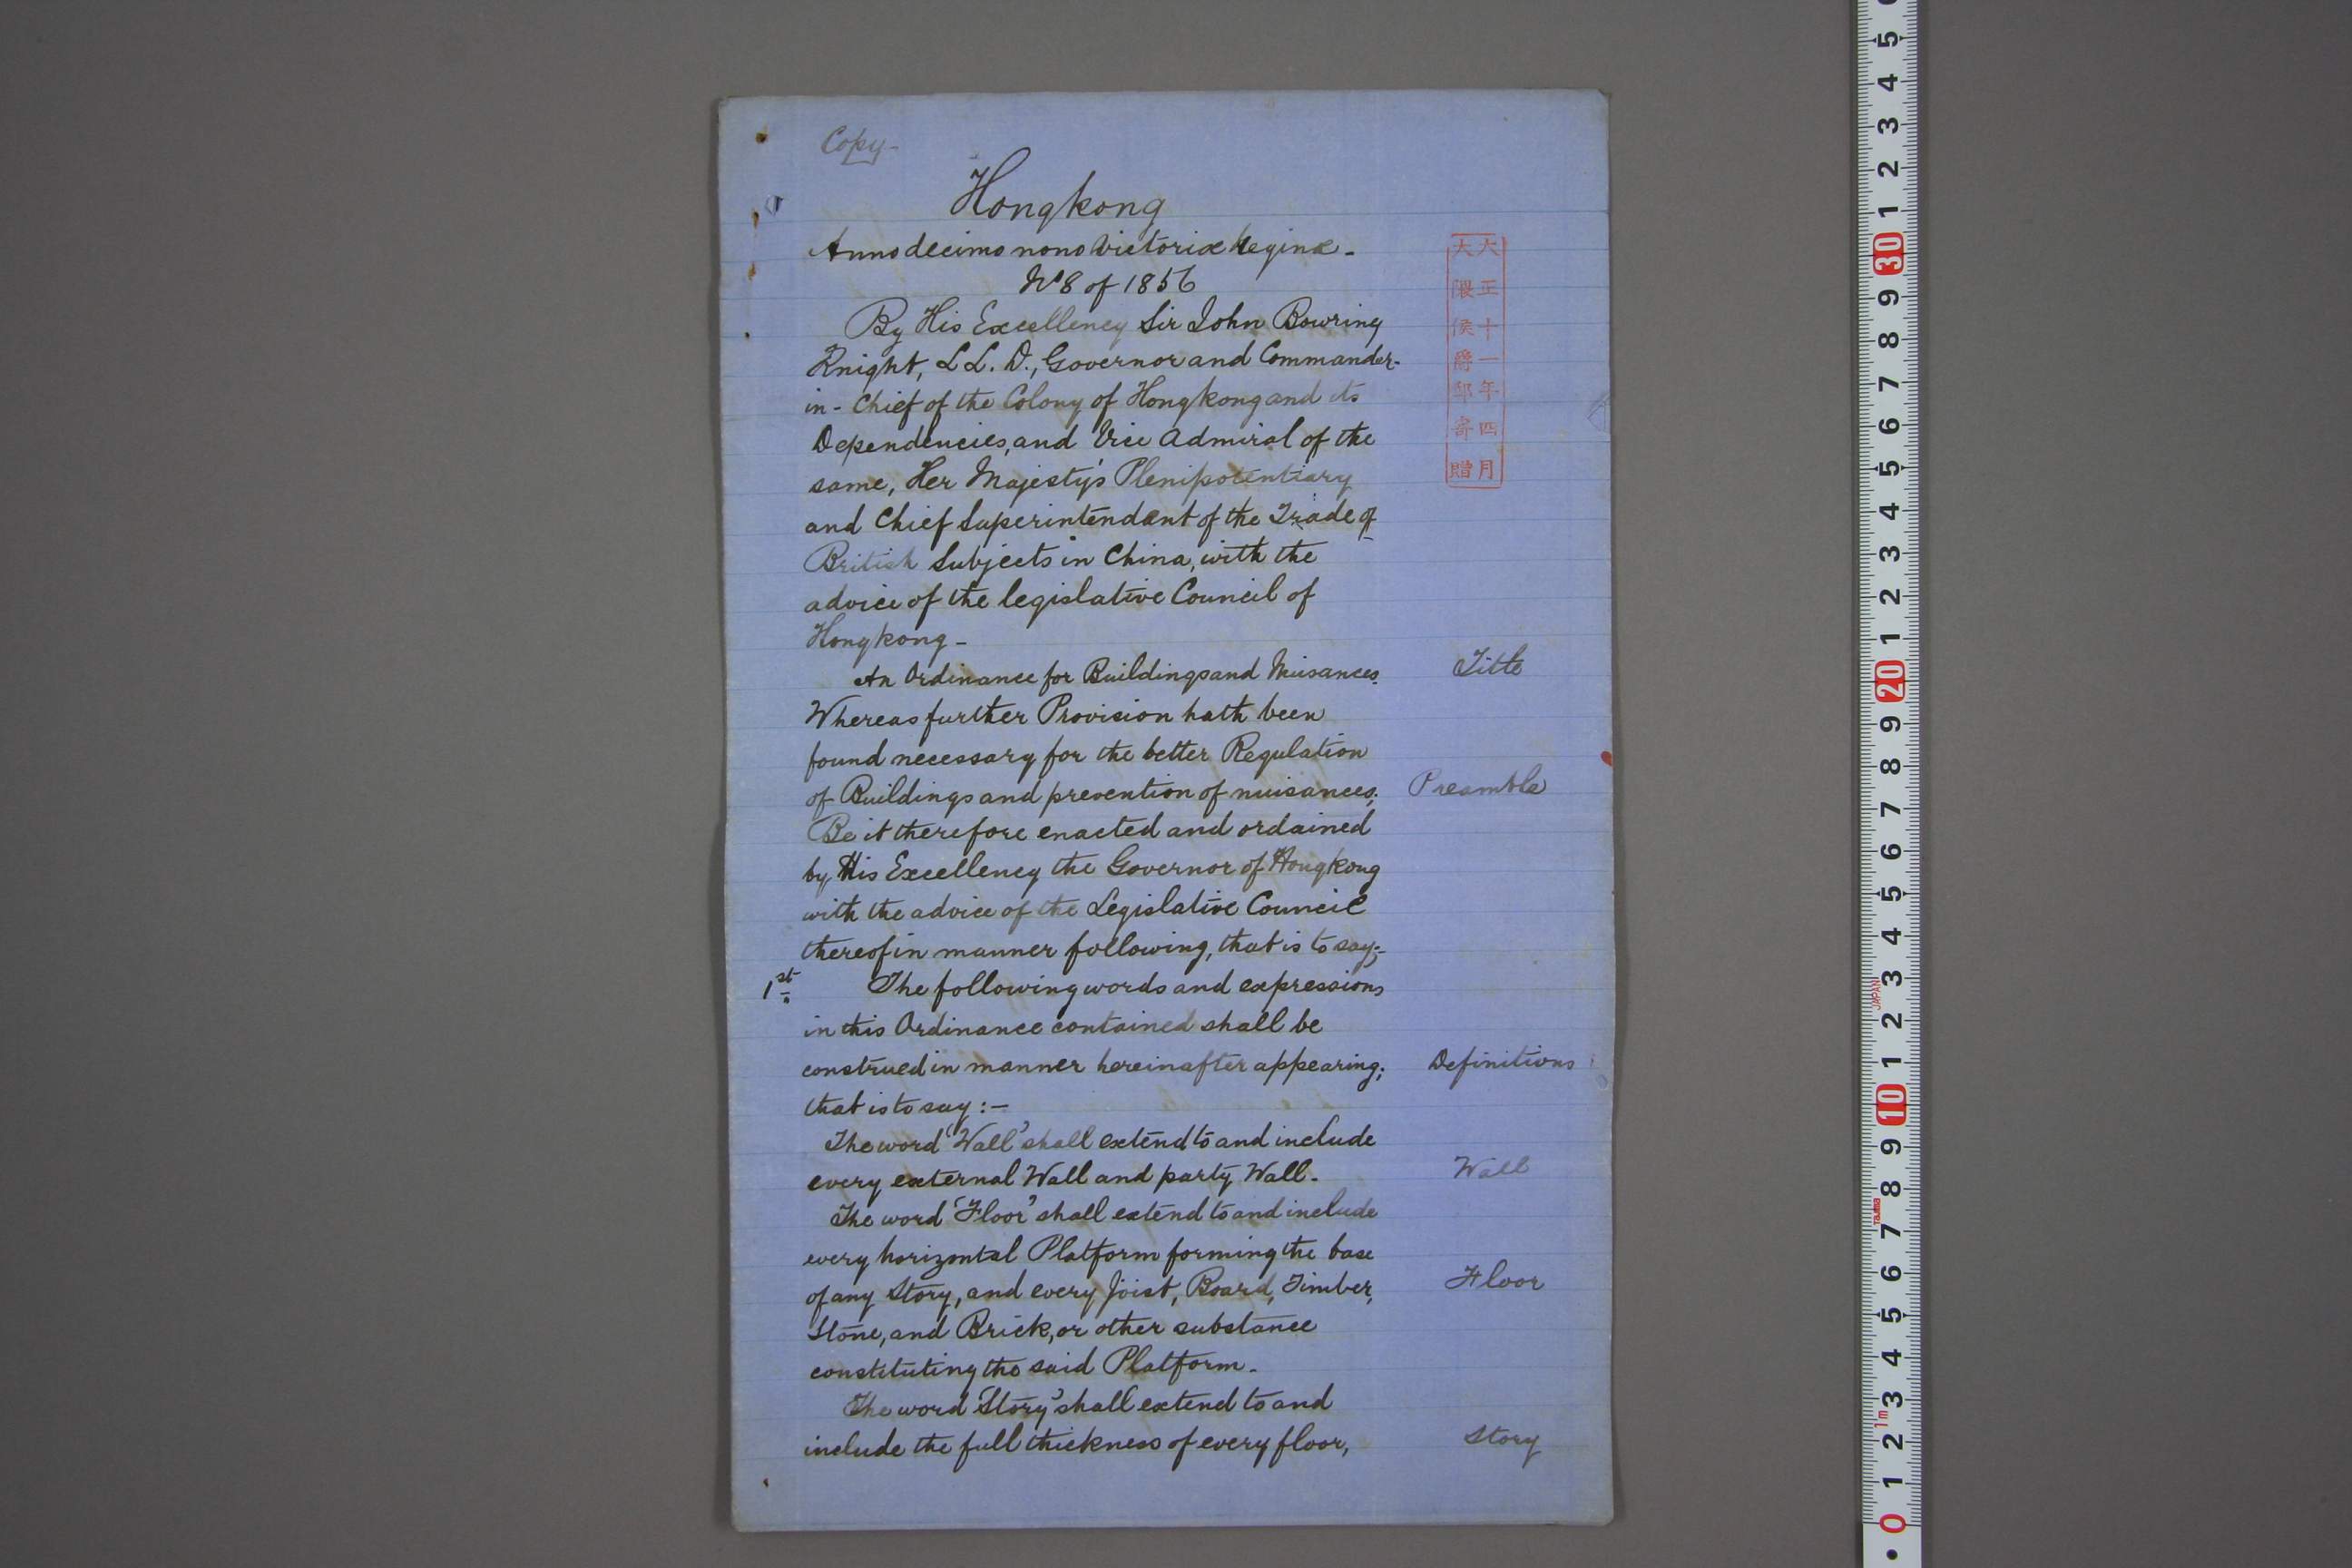 Copy-
Hongkong
Anno decimo nono Victoriæ Reginæ.
No 8 of 1856
By His Excellency Sir John Bowring
Knight, L L. D., Governor and Commander-
in-Chief of the Colony of Hongkong and its
Dependencies, and Vice Admiral of the
same, Her Majesty's Plenipotentiary
and Chief Superintendent of the Trade of
British Subjects in China, with the
advice of the legislative Council of
Hongkong-
An Ordinance for Buildings and Nuisances.
Title
Whereas further Provision hath been
found necessary for the better Regulation
of Buildings and prevention of nuisances;
Preamble
Be it therefore enacted and ordained
by His Excellency the Governor of Hongkong
with the advice of the Legislative Council
thereof in manner following, that is to say;-
1st The following words and expressions
in this Ordinance contained shall be
construed in manner hereinafter appearing;
Definitions
that is to say:-
The word 'Wall' shall extend to and include
every external Wall and party Wall.
Wall
The word 'Floor' shall extend to and include
every horizontal Platform forming the base
of any Story, and every Joist, Board, Timber,
Floor
Stone, and Brick, or other substance
constituting the said Platform.
The word 'Story' shall extend to and
include the full thickness of every floor,
Story
大正十一年四月
大隈侯爵邸寄贈
5
4
3
2
1
30
9
8
7
6
5
4
3
2
1
20
9
8
7
6
5
4
3
JAPAN
2
1
10
9
8
TAJIMA
7
6
5
4
3
1m
2
1
0